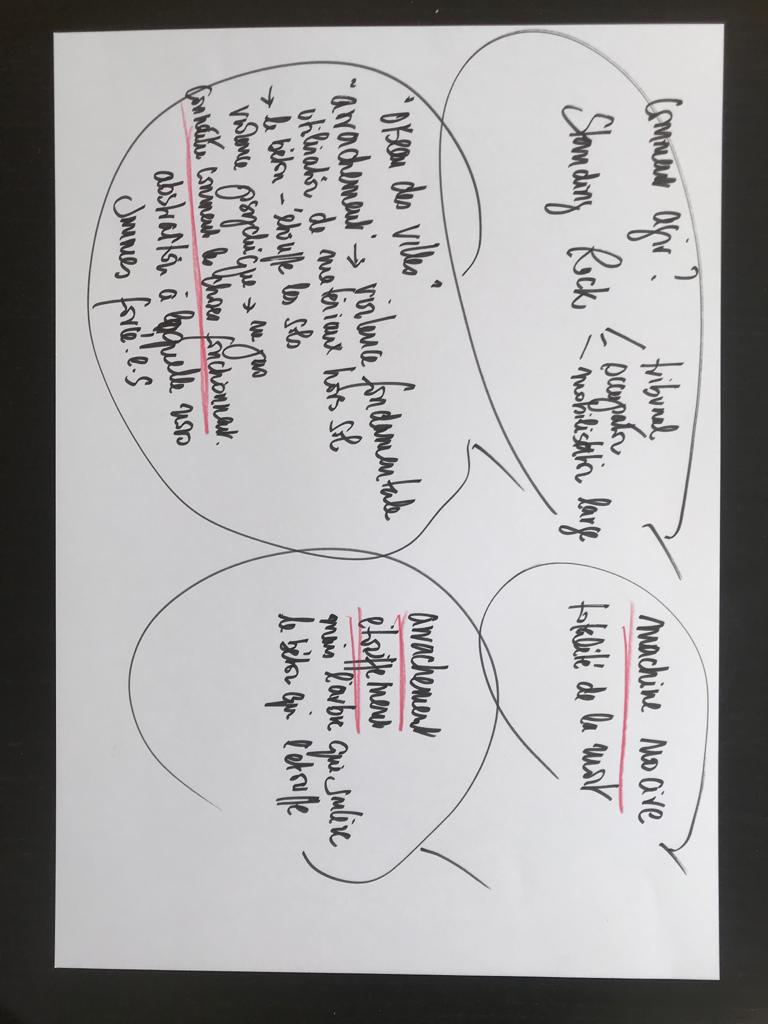 Comment agir?
Standing Rock < tribunal
occupation
- mobilisation large
machine noire
totalité de la mort
"des villes"
"arrachement" → violence fondamentale
utilisation de matériaux hors sol
→ le béton - étouffe les sols
violence psychique → ne pas
connaître comment les choses fonctionnent.
abstraction à laquelle nous
sommes forcé.e.s
arrachement
étouffement
mais l'arbre qui soulève
le béton qui l'étouffe